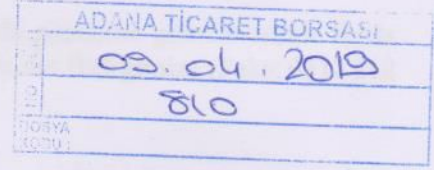 ADANA TİCARET BORSASI
09.04.2019
NO 810
DOSYA
KODU :